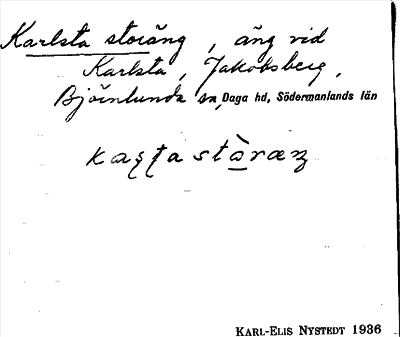 Karlsta storäng, äng vid
Karlsta, Jakobsberg,
Björnlunda sn, Daga hd, Södermanlands län
kaṣṭastὰ̱ræŋ
KARL-ELIS NYSTEDT 1936